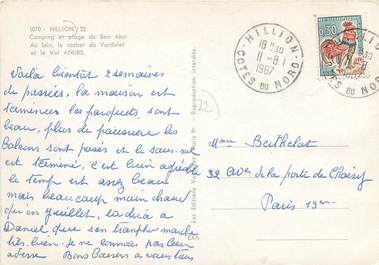 1070 - HILLION 22
Camping et plage du Bon Abri
Au loin, le rocher du Verdelet
et le Val ANDRE.
Voila bientôt 2 semaines
de passées, la maison est
terminée les parquets sont
beau, plus de poussière les
balcons sont posés et le sous-sol
est terminé, c'est bien agréable
le temps est assez beau
mais beaucoup moins chaud
qu'en juillet, tu dira à
Daniel que son marche
très bien. Je ne connais pas leur
adresse Bons Baisers à vous tous
Reproduction interdite.
(22)
HILLION
COTES DU NORD
18 H 30
11-8
1967
0,30
Mme Berthelot
32 Ave de la porte de Choisy
Paris 13e